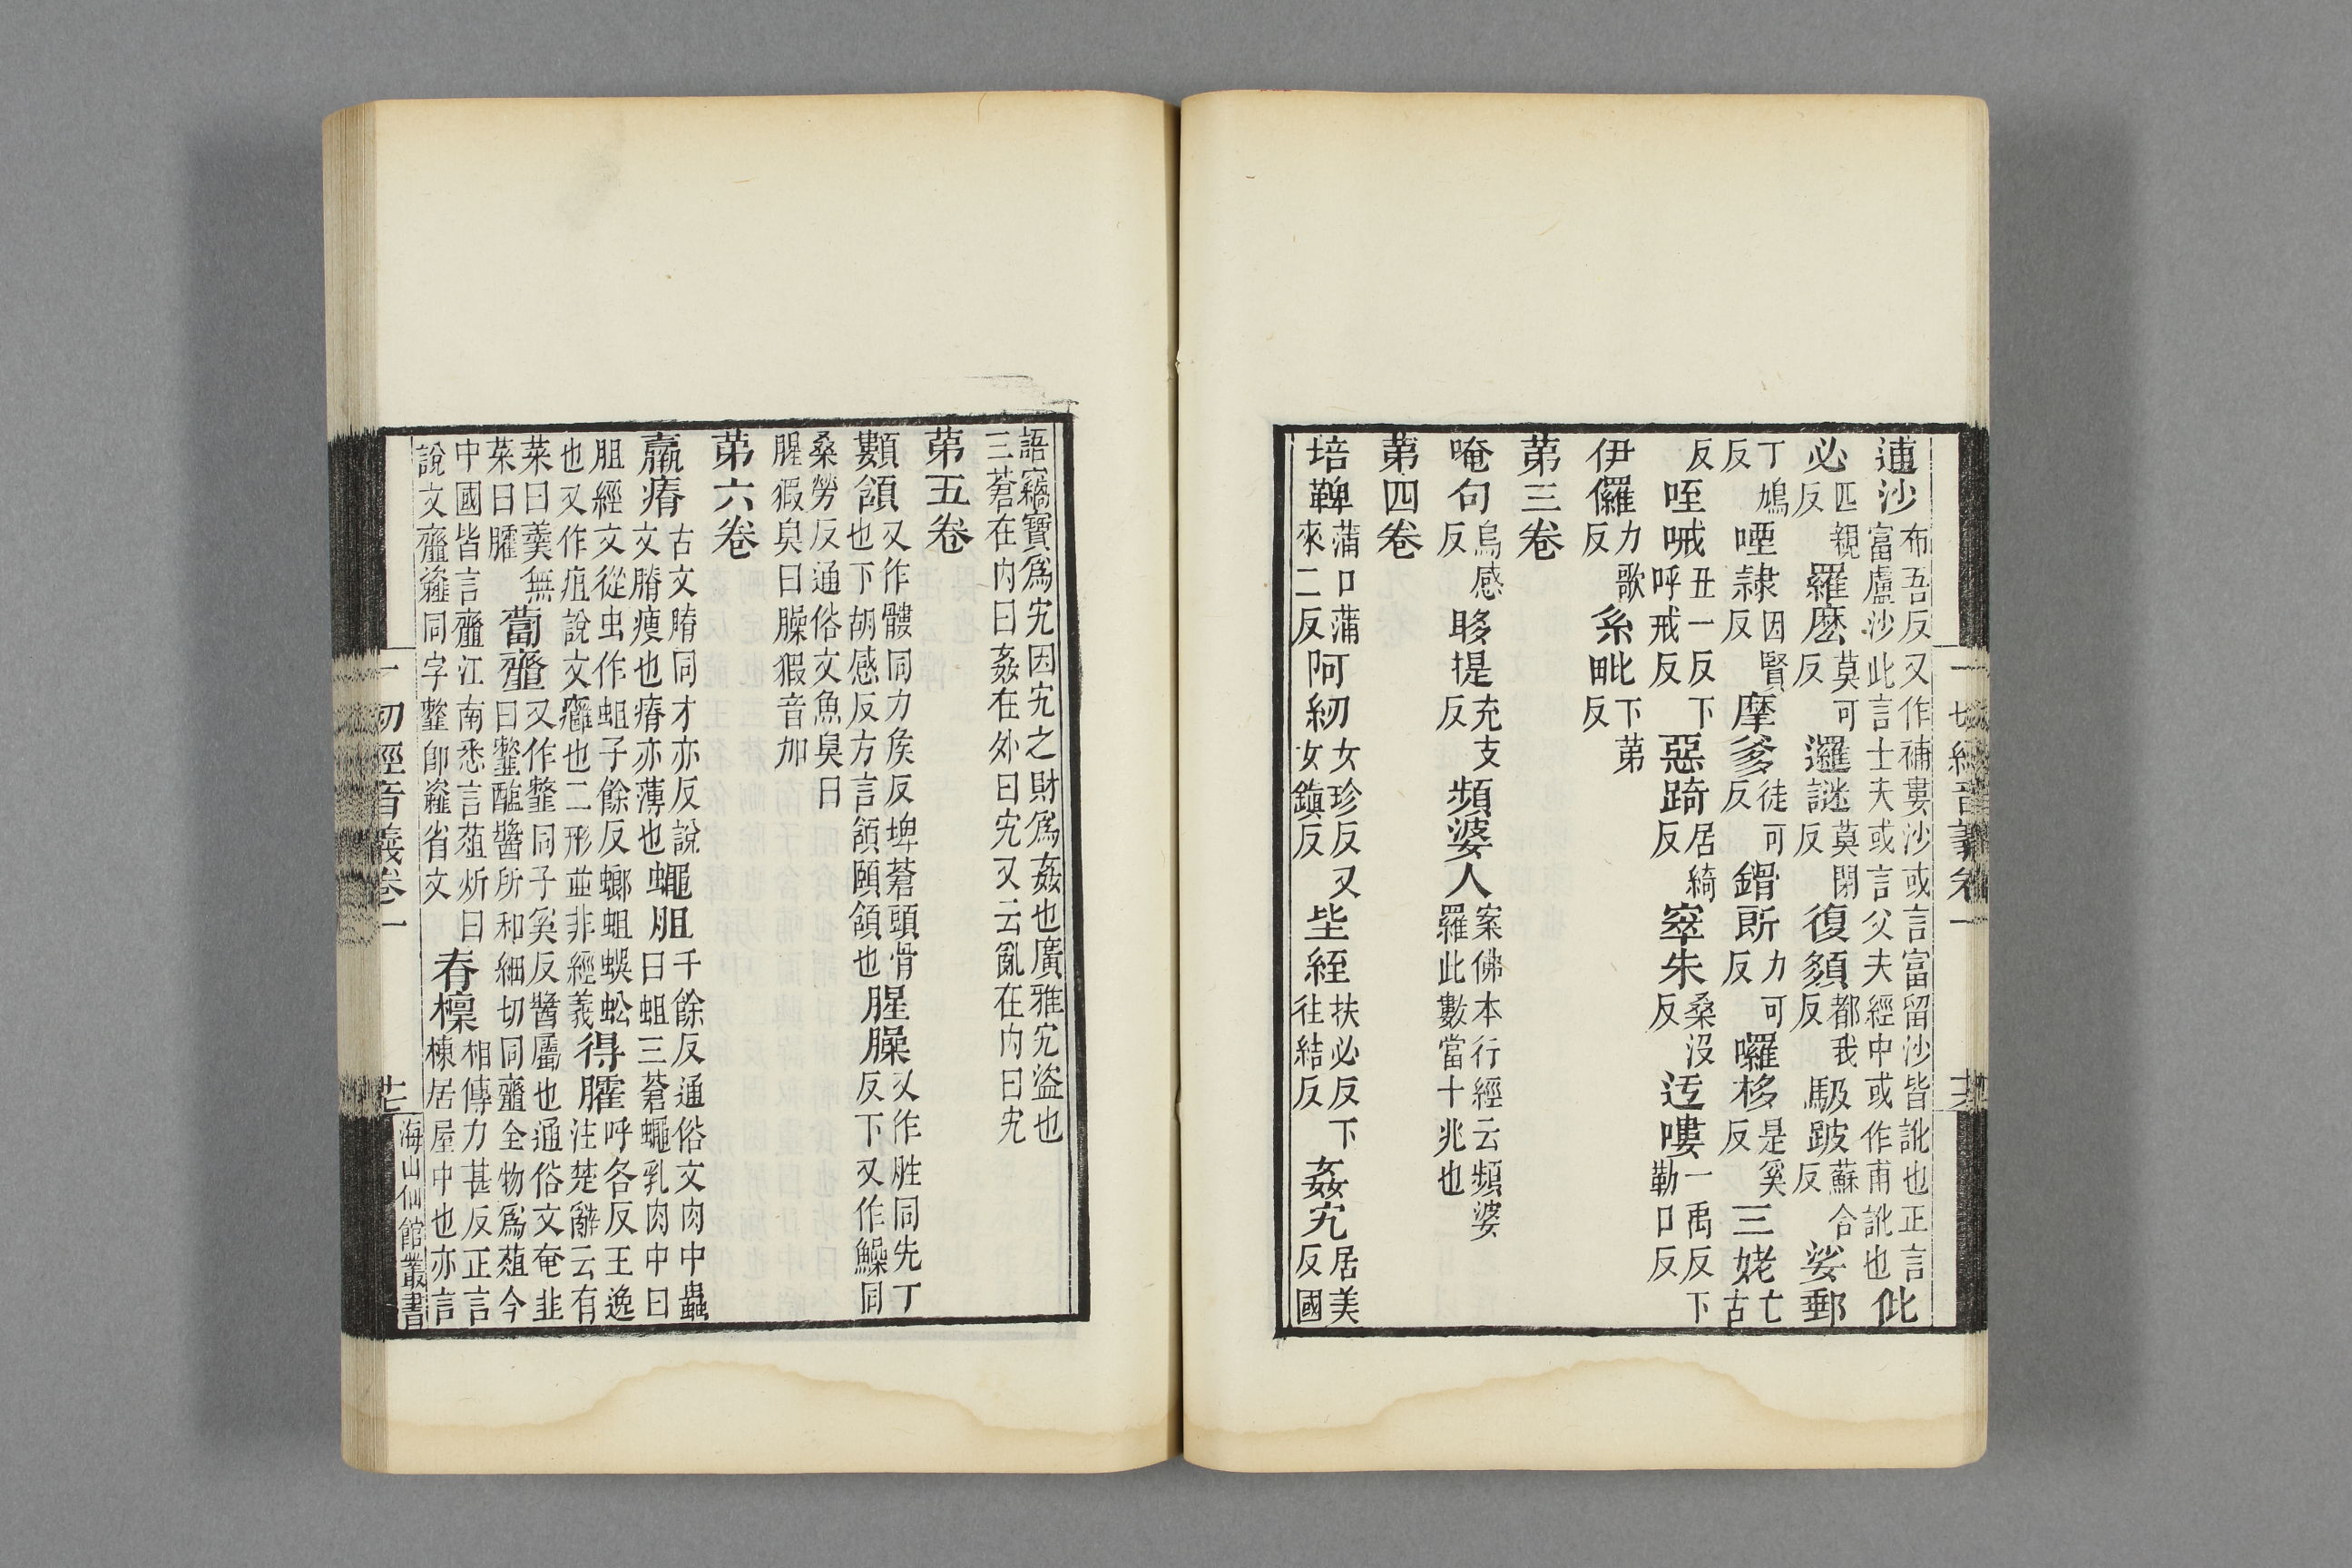 逋沙布吾反又作補婁沙或言富留沙皆訛也正言富盧沙此言士夫或言父夫經中或作甫訛也仳
必匹視反羅麽莫可反邏謎莫閉反復頦都我反馺跛蘇合反娑郵
丁鳩反噁隷因賢反摩爹徒可反鎉㪽力可反囉移是奚反三姥亡古
反咥㖑丑一反下呼戒反惡踦居綺反窣朱桑没反迃嘍一禹反下勒口反
伊儸力歌反系毗下第反
苐三卷
唵句烏感反眵提充支反頻婆人案佛本行經云頻婆羅此數當十兆也
苐四卷
培鞞蒲口蒲來二反阿紉女珍反又女鎭反坒絰扶必反下徃結反姦宄居美反國
語竊寶爲宄因宄之財爲姦也廣雅宄盜也三蒼在内曰姦在外曰宄又云亂在内曰宄
苐五卷
䫫頷又作髏同力矦反埤蒼頭骨也下胡感反方言頷頤頷也腥臊乂作胜同先丁反下又作鱢同
桑勞反通俗文魚臭曰腥猳臭曰臊猳音加
苐六卷
羸瘠古文膌同才亦反說文膌瘦也瘠亦薄也蠅胆千餘反通俗文肉中蟲曰蛆三蒼蠅乳肉中曰
胆經文從虫作蛆子餘反蝍蛆蜈蚣也又作疽說文癰也二形並非經義得臛呼各反王逸注楚辭云有
菜曰羹無菜曰臛蔔虀又作䪢同子奚反醬屬也通俗文奄韭曰䪢醢醬所和細切同虀全物爲葅今
中國皆言虀江南悉言葅說文虀䪡同字䪢卽䪡省文舂檁相傳力甚反正言棟居屋中也亦言
一切經音義卷一
十六
一切經音義卷一
十七
海山仙館叢書